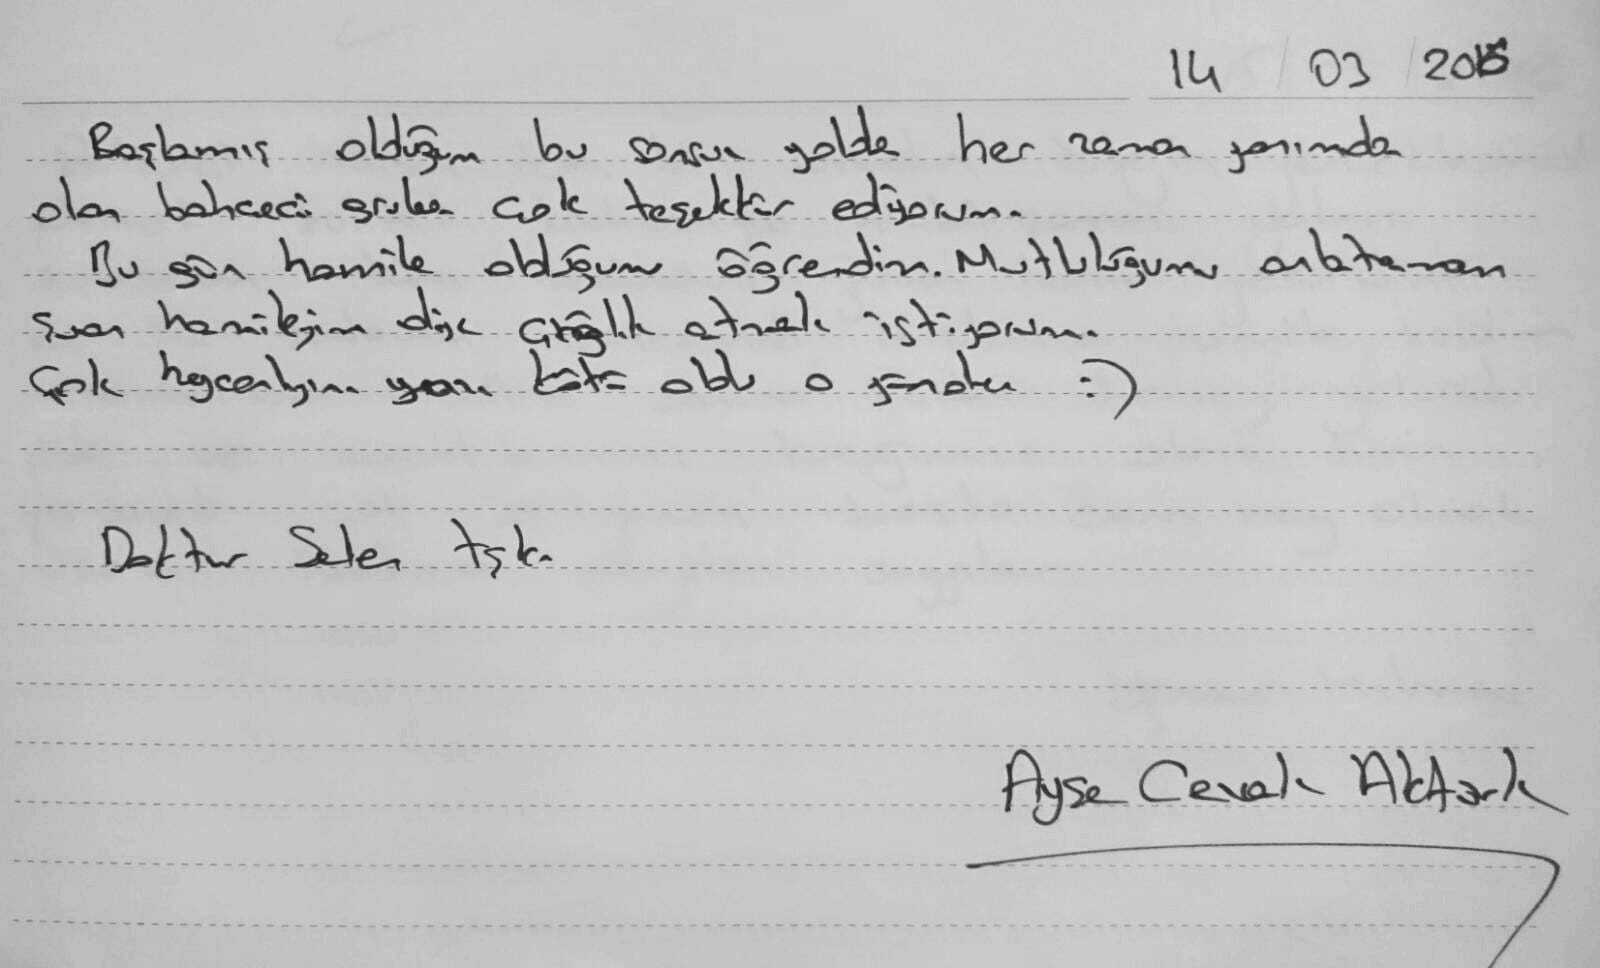 14 / 03 / 2015
Başlamış olduğum bu sonsuz yolda her zaman yanımda
olan bahçeci grubuna çok teşekkür ediyorum.
Bu gün hamile olduğumu öğrendim. Mutluluğumu anlatamam
şuan hamileyim diye çığlık atmak istiyorum.
Çok heycanlıyım yazım kötü oldu o yüzden :)
Doktur Selen
Ayşe Cevak Aktürk